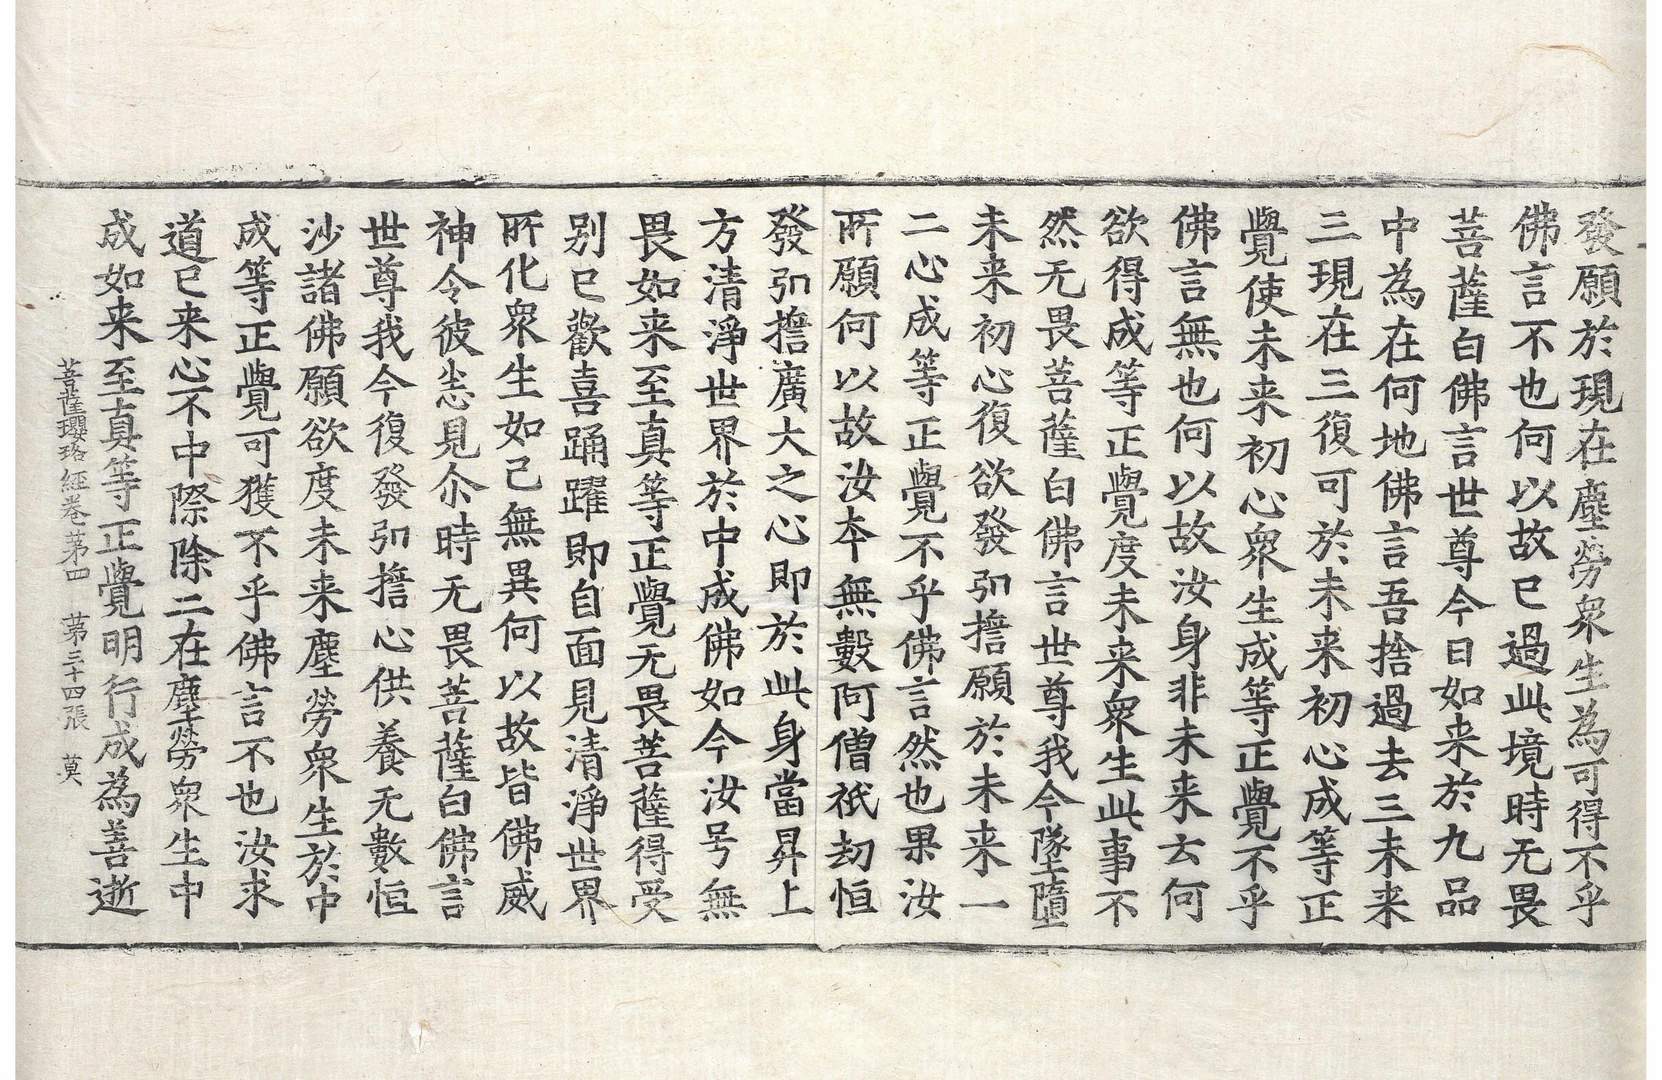 發願於現在塵勞衆生為可得不乎
佛言不也何以故已過此境時无畏
菩薩白佛言世尊今日如来於九品
中為在何地佛言吾捨過去三未来
三現在三復可於未来初心成等正
覺使未来初心衆生成等正覺不乎
佛言無也何以故汝身非未来云何
欲得成等正覺度未来衆生此事不
然无畏菩薩白佛言世尊我今墜墮
未来初心復欲發弘擔願於未来一
二心成等正覺不乎佛言然也果汝
所願何以故汝夲無數阿僧祇劫恒
發弘擔廣大之心即於此身當昇上
方清淨世界於中成佛如今汝号無
畏如来至真等正覺无畏菩薩得受
别已歡喜踊躍即自面見清淨世界
所化衆生如己無異何以故皆佛威
神令彼恙見尒時无畏菩薩白佛言
世尊我今復發弘擔心供養无數恒
沙諸佛願欲度未来塵勞衆生於中
成等正覺可獲不乎佛言不也汝求
道已来心不中際除二在塵勞衆生中
成如来至真等正覺明行成為善逝
菩薩瓔珞經卷苐四 苐三十四張 莫